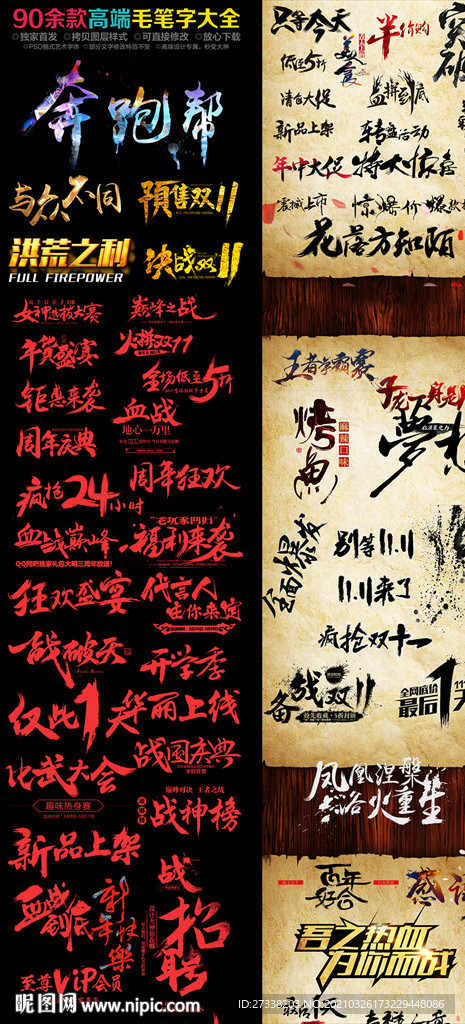 90余款高端毛笔字大全
◎独家首发 ◎拷贝图层样式 ◎可直接修改 ◎放心下载
◎PSD格式艺术字体 ◎部分文字修改特效不变 ◎高端设计专属，秒变大神
奔跑帮
与众不同
預售双11
洪荒之利
FULL FIREPOWER
决战双11
女神选拔大赛
巅峰之战
年货盛宴
火拼双11
钜惠来袭
全场低至5折
血战
地心一万里
周年庆典
周年狂欢
疯抢24小时
血战巅峰
QQ网吧独家礼包大唱三周年放送！
老玩家回归
福利来袭
狂欢盛宴
代言人
由你来定
战破天
开学季
仅此1天
华丽上线
战国庆典
比武大会
趣味热身赛
巅峰对决 王者之战
战神榜
新品上架
战
血战到底
新年快樂
招聘
至尊VIP会员
只等今天
半价购
突破
低至5折
美食
清仓大促
血拼到底
新品上架
转盘活动
年中大促
特大惊喜
震撼上市
惊爆价
爆款
花落方知陌
王者争霸赛
烤魚
麻辣口味
夢想
全面爆发
别等11.11
11.11来了
疯抢双十一
备战双11
抢先收藏·5折封顶
全网底价
最后1
凤凰涅槃
浴火重生
百年好合
感
吾之热血
为你而战
昵图网 www.nipic.com
ID:27338203 NO:20210326173229448086